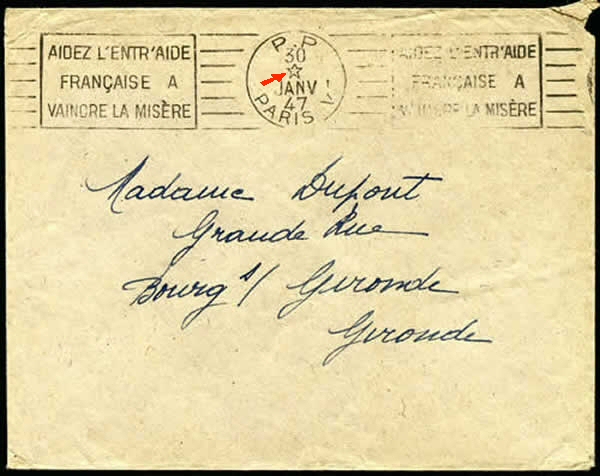 AIDEZ L'ENTR'AIDE
FRANÇAISE A
VAINCRE LA MISÈRE
P.P
30
JANV
47
PARIS V
AIDEZ L'ENTR'AIDE
FRANÇAISE A
VAINCRE LA MISÈRE
Madame Dupont
Grande Rue
Bourg s/ Gironde
Gironde